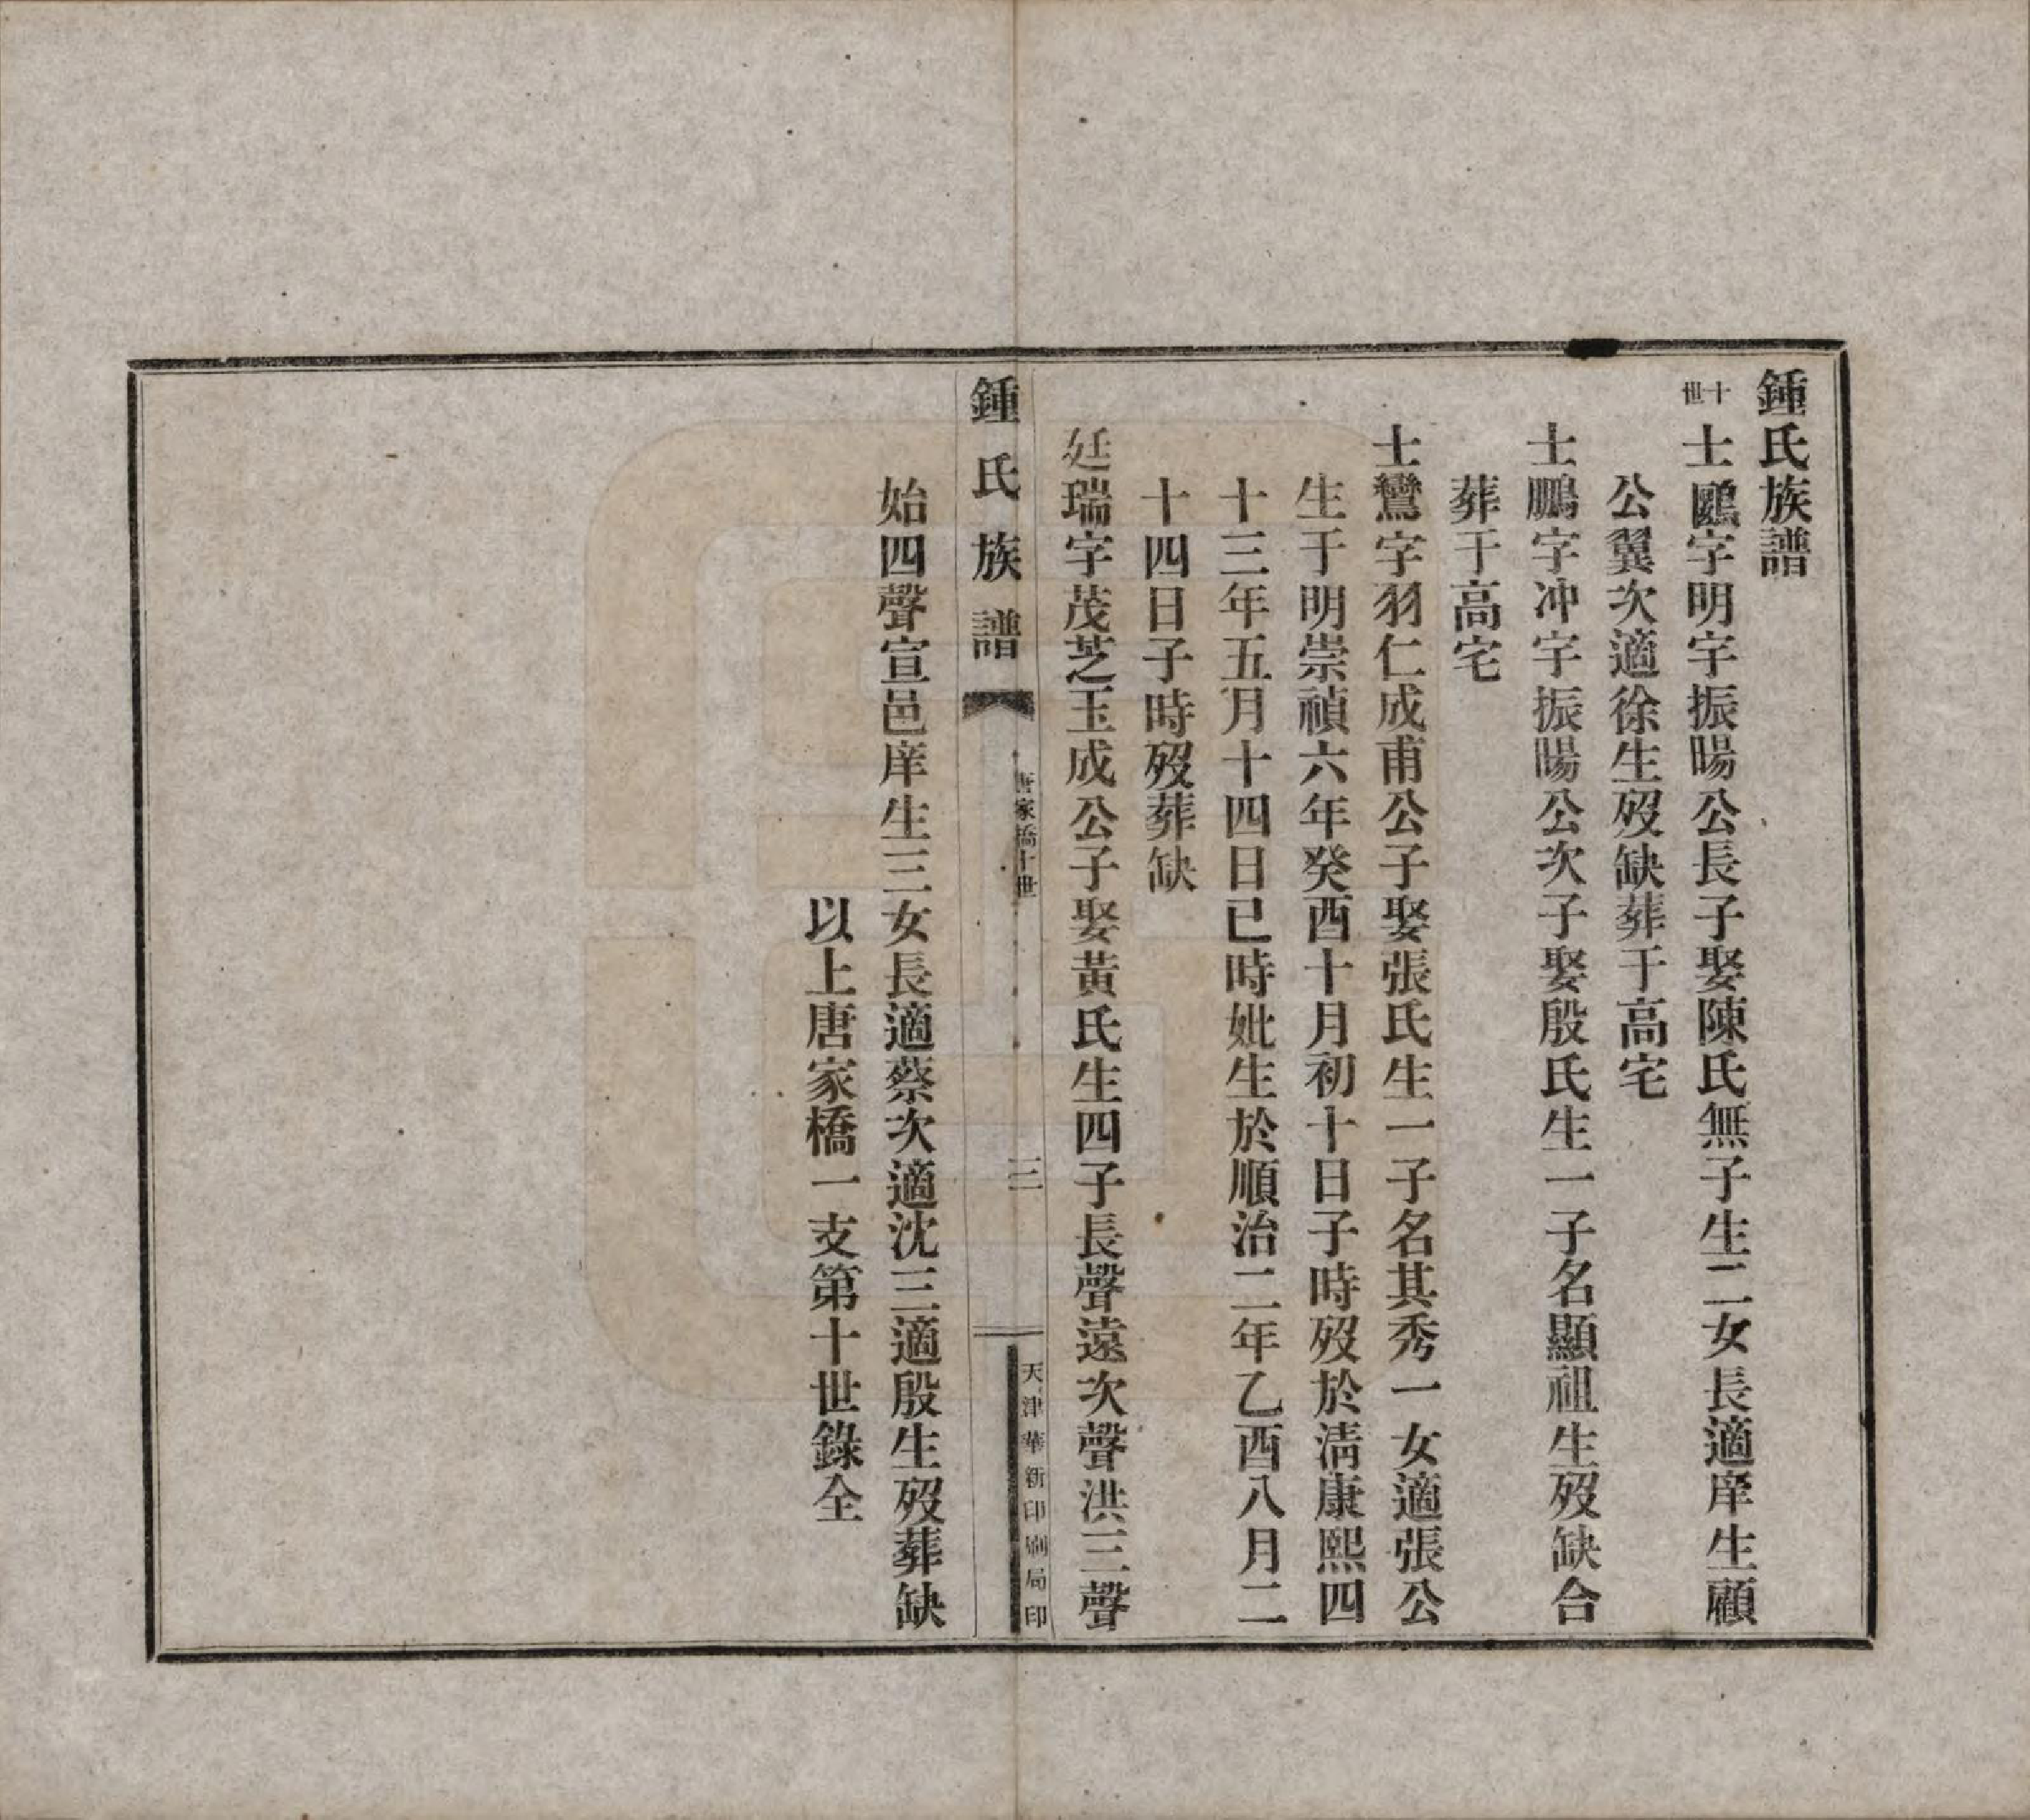 鍾氏族譜
十世
士鷗字明宇振暘公長子娶陳氏無子生二女長適庠生顧
公翼次適徐生歿缺葬于高宅
士鵬字冲宇振暘公次子娶殷氏生一子名顯祖生歿缺合
葬于高宅
士鸞字羽仁成甫公子娶張氏生一子名其秀一女適張公
生于明崇禎六年癸酉十月初十日子時歿於淸康熙四
十三年五月十四日巳時妣生於順治二年乙酉八月二
十四日子時歿葬缺
廷瑞字茂芝玉成公子娶黃氏生四子長聲遠次聲洪三聲
鍾氏族譜
唐家橋十世
三
天津華新印刷局印
始四聲宣邑庠生三女長適蔡次適沈三適殷生歿葬缺
以上唐家橋一支第十世錄全